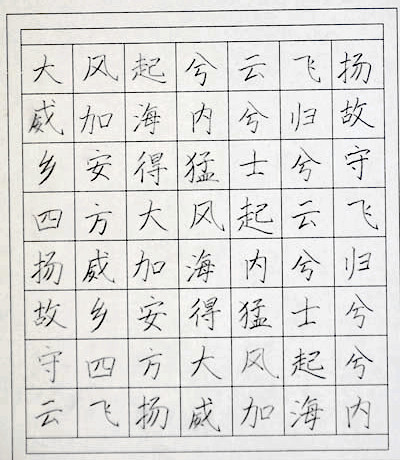 大风起兮云飞扬
威加海内兮归故
乡安得猛士兮守
四方大风起云飞
扬威加海内兮归
故乡安得猛士兮
守四方大风起兮
云飞扬威加海内